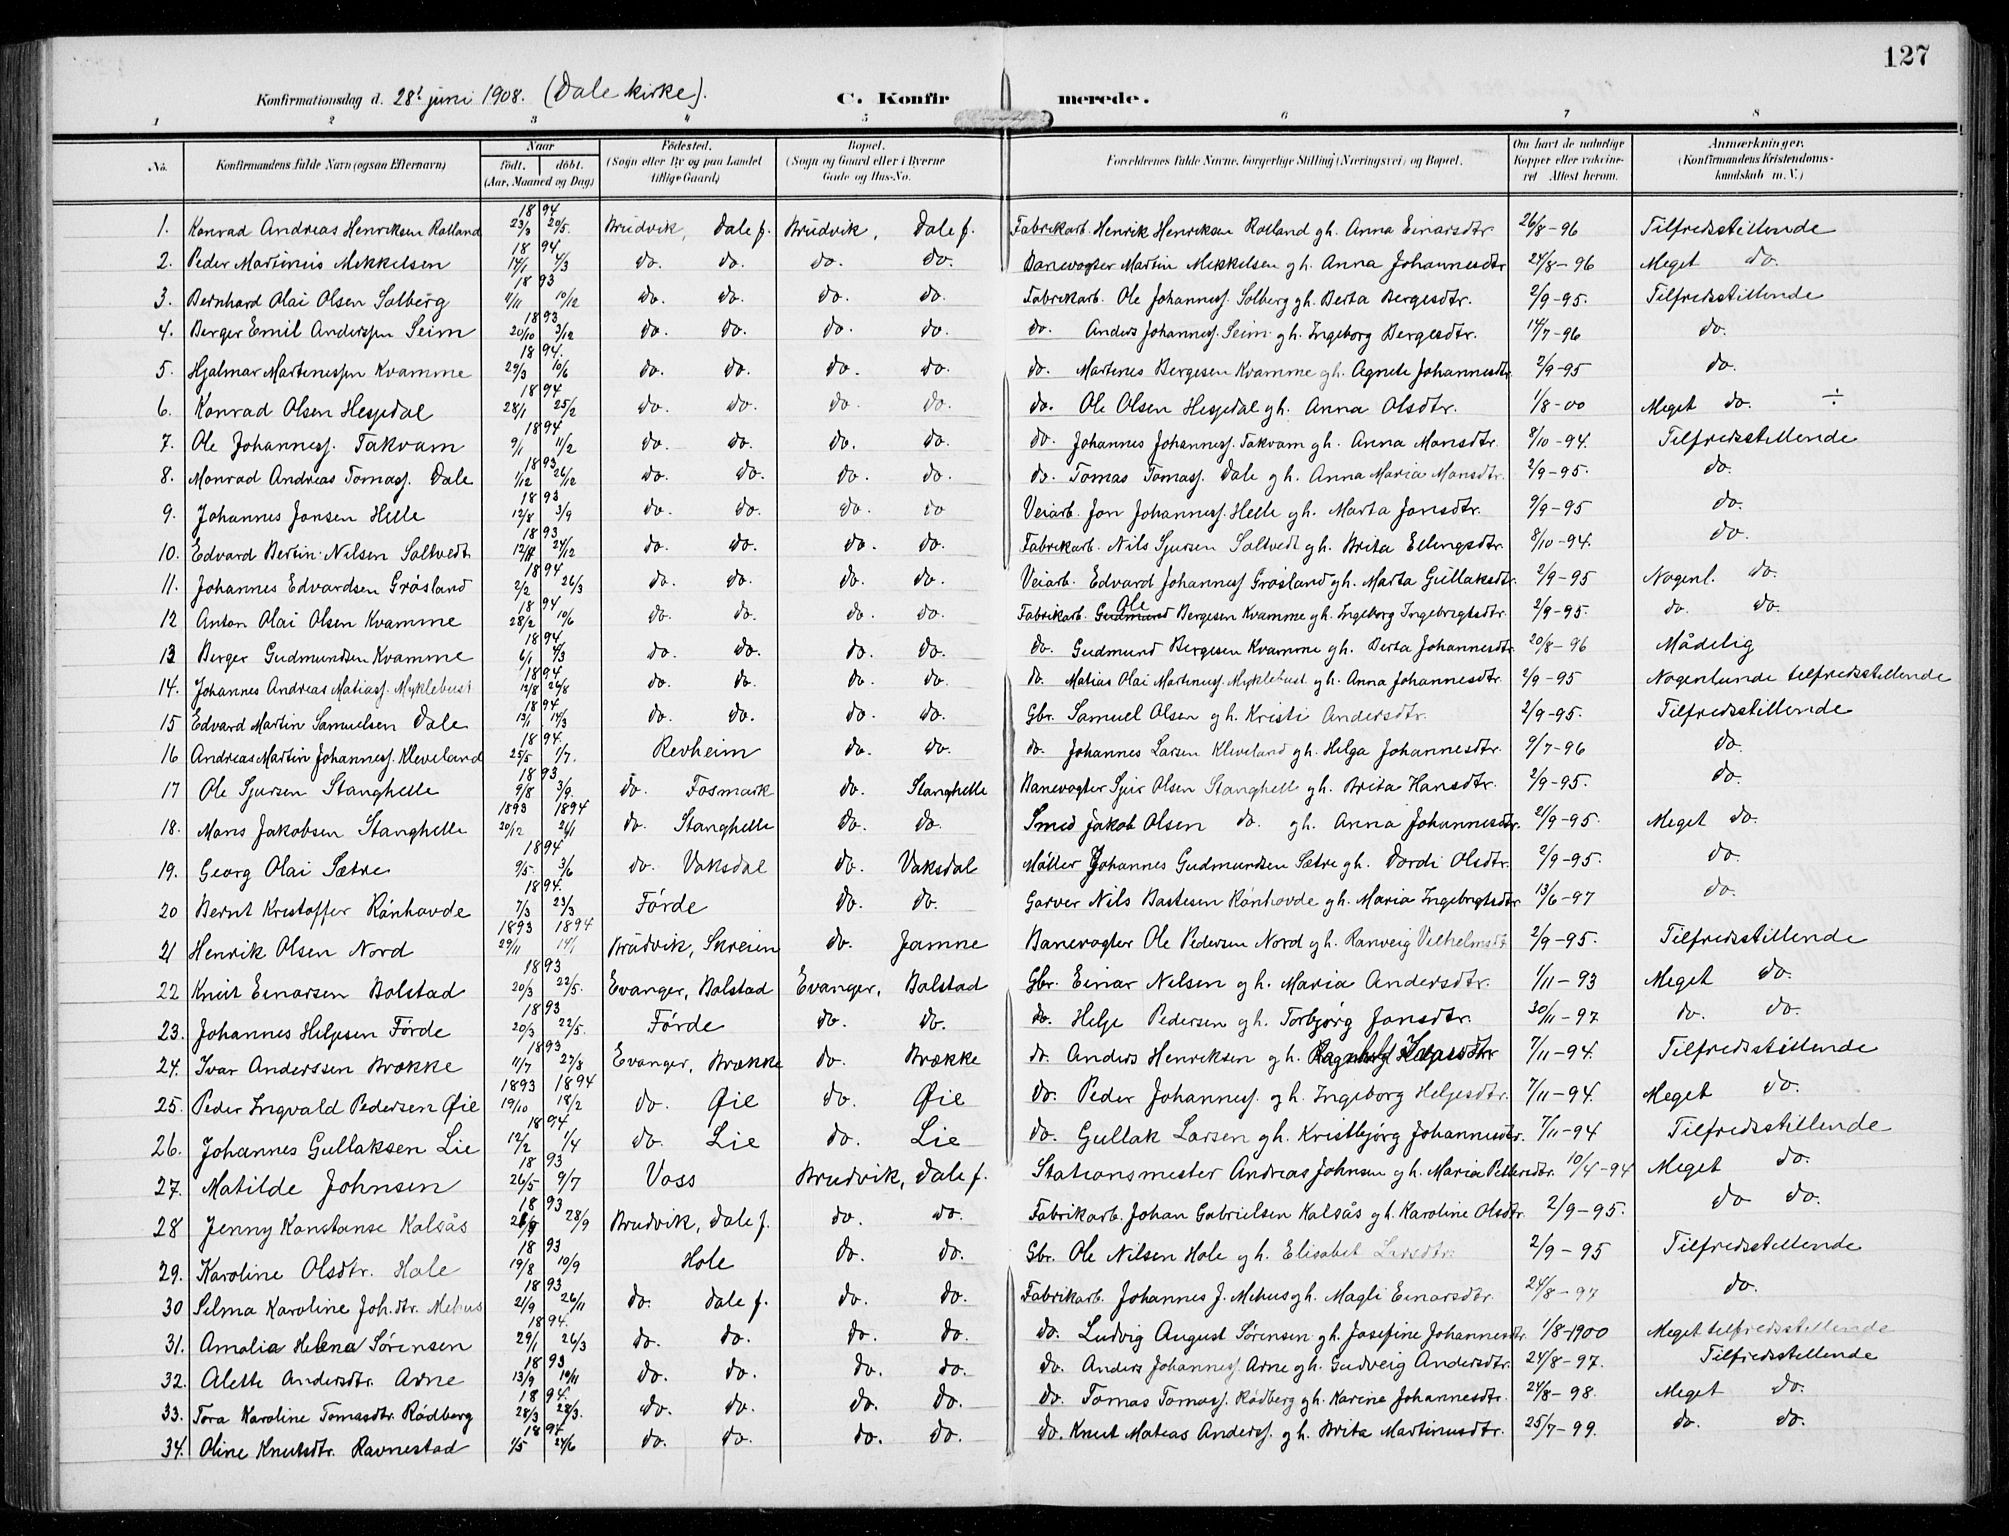 127
Konfirmationsdag d. 28' juni 1908. (Dale kirke). C. Konfirmerede.
1 2 3 4 5 6 7 8
No. Konfirmandens fulde Navn (ogsaa Efternavn) Naar født. døbt. (Aar, Maaned og Dag) Fødested. (Sogn eller By og paa Landet tillige Gaard) Bopæl. (Sogn og Gaard eller i Byerne Gade og Hus-No. Forældrenes fulde Navne, borgerlige Stilling (Næringsvei) og Bopæl. Om havt de naturlige Kopper eller vaccineret Attest herom. Anmærkninger. (Konfirmandens Kristendomskundskab m. V.)
1. Konrad Andreas Henriksen Rolland 1894 23/3 20/5. Brudvik, Dale f. Brudvik, Dale f. Fabrikarb. Henrik Henriksen Rolland gh. Anna Einarsdtr 26/8-96 Tilfredsstillende
2. Peder Martinus Mikkelsen 1894 14/1 4/3 do. do. do. do. Banevogter Martin Mikkelsen gh. Anna Johannesdtr 24/8-96 Meget do.
3. Bernhard Olai Olsen Solberg 1893 9/11 10/12 do. do. do. do. Fabrikarb. Ole Johanness. Solberg gh. Berta Bergesdtr. 2/9-95. Tilfredsstillende
4. Berger Emil Anderssen Seim 1893 20/10 3/12 do. do. do. do. do. Anders Johanness. Seim gh. Ingeborg Bergesdtr. 14/7-96 do.
5. Hjalmar Martinussen Kvamme 1894. 29/3 10/6 do. do. do. do. do. Martines Bergesen Kvamme gh. Agnete Johannesdtr. 2/9-95 do.
6. Konrad Olsen Hesjedal 1894 28/1 25/2 do. do. do. do. do. Ole Olsen Hesjedal gh. Anna Olsdtr. 1/8-00 Meget do. ÷
7. Ole Johanness. Takvam 1894 9/1 11/2 do. do. do. do. do. Johannes Johanness. Takvam gh. Anna Monsdtr. 8/10-94. Tilfredsstillende
8. Monrad Andreas Tomass. Dale 1893 1/12 26/12 do. do. do. do. do. Tomas Tomass. Dale gh. Anna Maria Monsdtr. 2/9-95. do.
9. Johannes Jonsen Helle 1893 12/8 3/9 do. do. do. do Veiarb. Jon Johanness. Helle gh. Marta Jonsdtr. 9/9-95 do.
10. Edvard Bertin Nilsen Saltvedt 1893 12/11 24/12 do. do. do. do. Fabrikarb. Nils Sjursen Saltvedt gh. Brita Ellingsdtr. 8/10-94. do.
11. Johannes Edvardsen Grøsland 1894 2/2 26/3 do. do. do. do. Veiarb. Edvard Johanness Grøsland gh. Marta Gullaksdtr. 2/9-95 Nogenl. do.
12 Anton Olai Olsen Kvamme 1894 28/2 10/6 do. do. do. do. Fabrikarb. Gudmund Ole Bergesen Kvamme gh. Ingeborg Ingebrigtsdtr 2/9-95. do. do.
13 Berger Gudmundsen Kvamme 1894 6/1 4/3 do. do. do. do. do. Gudmund Bergesen Kvamme gh. Berta Johannesdtr. 20/8-96 Mådelig
14. Johannes Andreas Matiass. Myklebust 1894 12/8 26/8 do. do. do. do. do. Matias Olai Martinuss. Myklebust gh. Anna Johannesdtr. 2/9-95 Nogenlunde tilfredsstillende
15 Edvard Martin Samuelsen Dale 1894 13/1 14/3 do. do. do. do. Gbr. Samuel Olsen gh. Kristi Andersdtr. 2/9-95. Tilfredsstillende
16 Andreas Martin Johanness. Kleveland 1894. 25/5 1/7. Revheim do. do. do. Johannes Larsen Kleveland gh. Helga Johannesdtr. 9/7-96 do.
17 Ole Sjursen Stanghelle 1893 9/8 3/9. do. Fosmark do. Stanghelle Banevogter Sjur Olsen Stanghelle gh. Brita Hansdtr. 2/9-95. do.
18. Mons Jakobsen Stanghelle 1893 1894 20/12 21/1 do. Stanghelle do. do. Smed Jakob Olsen do. gh. Anna Johannesdtr. 2/9-95. Meget do.
19. Georg Olai Sætre 1894 9/5. 3/6 do. Vaksdal do. Vaksdal Møller Johannes Gudmundsen Sætre gh. Dordi Olsdtr. 2/9-95. do.
20 Bernt Kristoffer Rønhovde 1894. 7/3 23/3 Førde do. do. Garver Nils Bastesen Rønhovde gh. Maria Ingebrigtsdtr 13/6-97 do.
21 Henrik Olsen Nord 1893 1894 29/11 14/1 Brudvik, Skreien do. Jamne Banevogter Ole Pedersen Nord gh. Ranveig Vilhelmsdt 2/9-95. Tilfredsstillende
22 Knut Einarsen Bolstad 1893 20/3 22/5. Evanger, Bolstad Evanger, Bolstad Gbr. Einar Nilsen gh. Maria Andersdtr. 1/11-93 Meget do.
23. Johannes Helgesen Førde 1893 20/3 22/5. Førde do. do. do. Helge Pedersen gh. Torbjørg Jonsdtr. 30/11-97 do. do.
24. Ivar Anderssen Brække 1893 11/7 27/8 Evanger, Brække do. Brække do. Anders Henriksen gh. Ragnhild Helgesdtr 7/11-94. Tilfredsstillende
25. Peder Ingvald Pedersen Øie 1893 1894 19/10 18/2 do. Øie do. Øie do. Peder Johanness. gh. Ingeborg Helgesdtr. 7/11-94. Meget do.
26. Johannes Gullaksen Lie 1894 12/2 1/4 do. Lie do. Lie do. Gullak Larsen gh. Kristbjørg Johannesdtr. 7/11-94 Tilfredsstillende
27. Matilde Johnsen 1893 26/5 9/7 Voss Brudvik, Dale f. Stationsmester Andreas Johnsen gh. Maria Pettersdtr. 10/4-94 Meget do.
28 Jenny Konstanse Kalsås 1893 28/9 Brudvik, Dale f. do. do. Fabrikarb. Johan Gabrielsen Kalsås gh. Karoline Olsdtr. 2/9-95. do do.
29. Karoline Olsdtr. Hole 1893 19/8 10/9 Hole do. do. Gbr. Ole Nilsen Hole gh. Elisabet Larsdtr. 2/9-95 Tilfredsstillende
30 Selma Karoline Joh.dtr. Mehus 1893 21/9 26/11 do. Dale f. do. do. Fabrikarb. Johannes J. Mehus gh. Magli Einarsdtr. 24/8-97 do.
31. Amalia Helena Sørensen 1894. 29/1 26/3 do. do. do. do. do. Ludvig August Sørensen gh. Josefine Johannesdtr. 1/8-1900 Meget tilfredsstillende
32. Alette Andersdtr. Arne 1893 13/9 19/11 do. do. do. do. do. Anders Johanness. Arne gh. Gudveig Andersdtr. 24/8-97. Tilfredsstillende
33. Tora Karoline Tomasdtr. Rødberg 1894. 28/3 28/3. do. do. do. do. do. Tomas Tomass. Rødberg gh. Karine Johannesdtr. 24/8-98. Meget do.
34. Oline Knutsdtr. Ravnestad 1894 1/5 24/6 do. do. do. do. do. Knut Matias Anderss. gh. Brita Martinusdtr. 25/7-99. do. do.